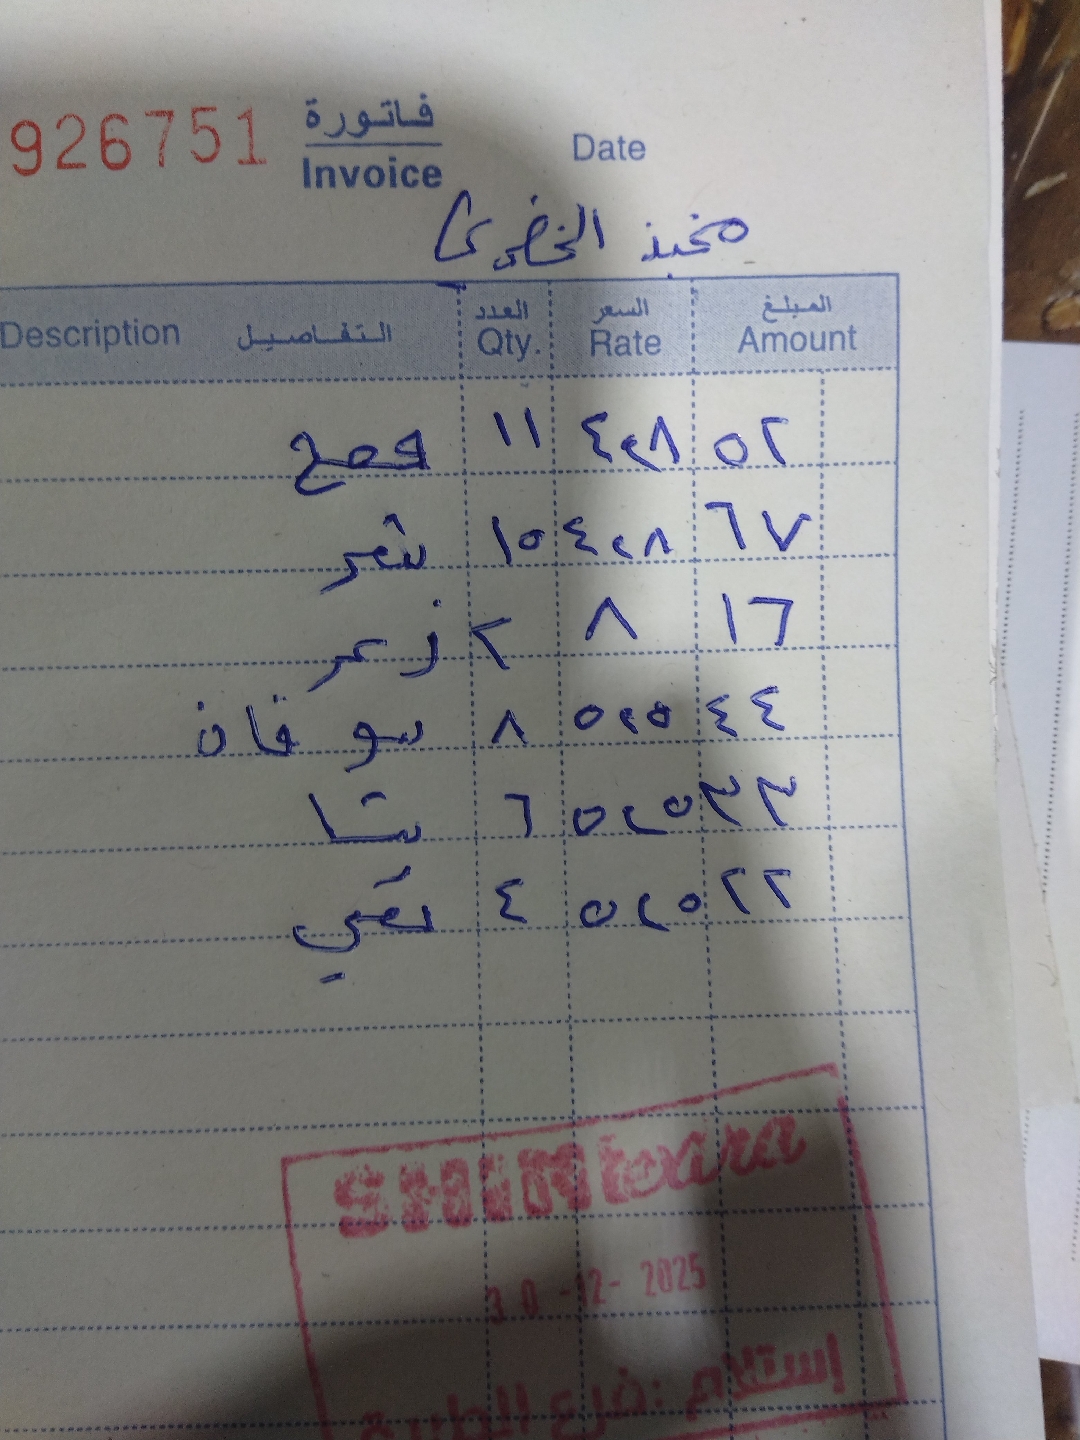 926751 فاتورة
Invoice Date
مخبز الخضري
Description التفاصيل العدد Qty. السعر Rate المبلغ Amount
قمح ١١ ٤,٨ ٥٢
شعر ١٥ ٤,٨ ٦٧
زعر ٢ ٨ ١٦
سو فان ٨ ٥,٥ ٤٤
شا ٦ ٥,٥ ٣٣
٤ ٥,٥ ٢٢
SHINwara
30-12-2025
إستلام : فرع